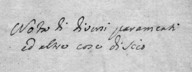 Nota di diversi paramenti
ed altre cose di